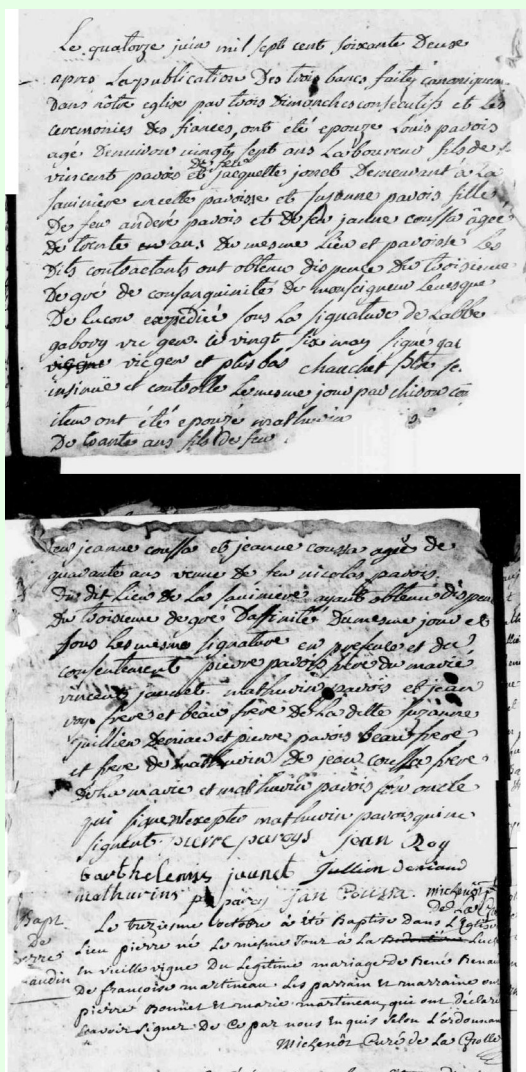 Le quatorze juin mil sept cent soixante Deuse
apres La publication Des trois bancs faits canoniquem
Dans nôtre eglise par trois Dimonches conseculifs et Les
ceremonies des fiances, ont été epouze Louis pavois
agé Dennviron vingt sept ans Laboureur fils de
vincent pavois et de feue jacquette jonet Demeurant a La
saviniere en cette paroisse et susanne pavois fille
De feu andere pavois et De feu janne coussa agée
De trente ans Du mesme Lieu et paroisse Les
Dits contractants ont obtenu dispence Du troisieme
Degré de consanquinité De monseigneur Levesque
De Lucon expedié sous La signature de Labbe
gabory vic gen. le vingt six may signe gab
vic gen et plus bas chauchet ptre se.
insinue et controlle Le mesme jour par chidou con
item ont étés epouzé mathurin
De trante ans fils de feu
feu jeanne coussa et jeanne coussa agée de
quarante ans veuve De feu nicolas pavois
Du dit Lieu De La saviniere ayant obtenu dispen
Du troisieme degré Daffinité Du mesme jour et
sous Les mesme signature en presence et du
consentement pierre pavois père du marié
vincent jaunet mathurin pavois et jean
roy frere et beau frère De La ditte suzanne
jullien Deriau et pierre pavois beau frere
et frere de mathurin De jean coussa frere
De La mariée et mathurin pavois son oncle
qui signent excepter mathurin pavois qui ne
signent. pierre parays jean Roy
barthelemy jaunet Jullien deriaud
mathurins parey jan Coussa. michenot
de La Gro
Bapt.
De
pierre
audin
Le treziesme octobre a été Baptise Dans L'Eglise
Lieu pierre né Le mesme Jour à La
En vieille vigne Du Legitime mariage de René Renau
De francoise martineau. Les parrain et marraine on
pierre Bonnet Et marie martineau, qui ont Declaré
scavoir signer De Ce par nous En quis selon L'ordonnan
Michenôt Curé de La Grolle